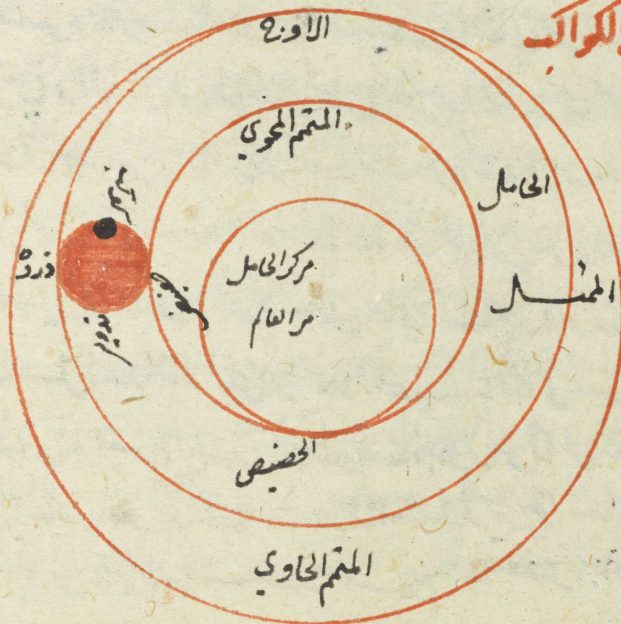 الكواكب
الاوج
المتمم المحوي
الحامل
الممثل
مركز الحامل
مر العالم
ذروة
تدوير
الحضيض
المتمم الحاوي